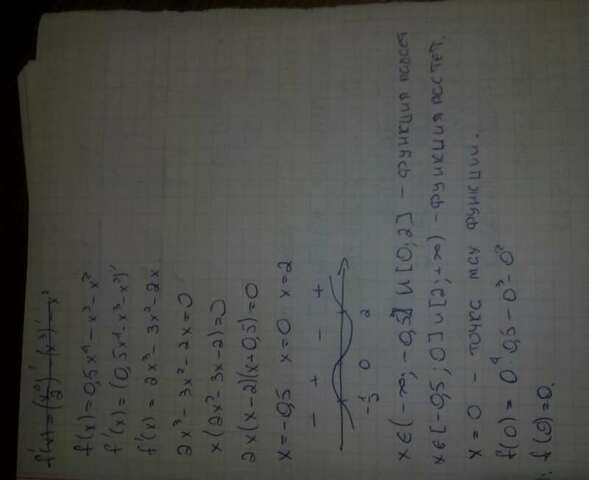 f'(x) = (x⁴/2)' - (x³)' - x²
f(x) = 0,5x⁴ - x³ - x²
f'(x) = (0,5x⁴ - x³ - x²)'
f'(x) = 2x³ - 3x² - 2x
2x³ - 3x² - 2x = 0
x(2x² - 3x - 2) = 0
2x(x-2)(x+0,5) = 0
x = -0,5 x = 0 x = 2
- + - +
-1/2 0 2
x ∈ (-∞; -0,5] ∪ [0; 2] - функция падает
x ∈ [-0,5; 0] ∪ [2; +∞) - функция растет.
x = 0 - точка max функции.
f(0) = 0⁴·0,5 - 0³ - 0²
f(0) = 0.